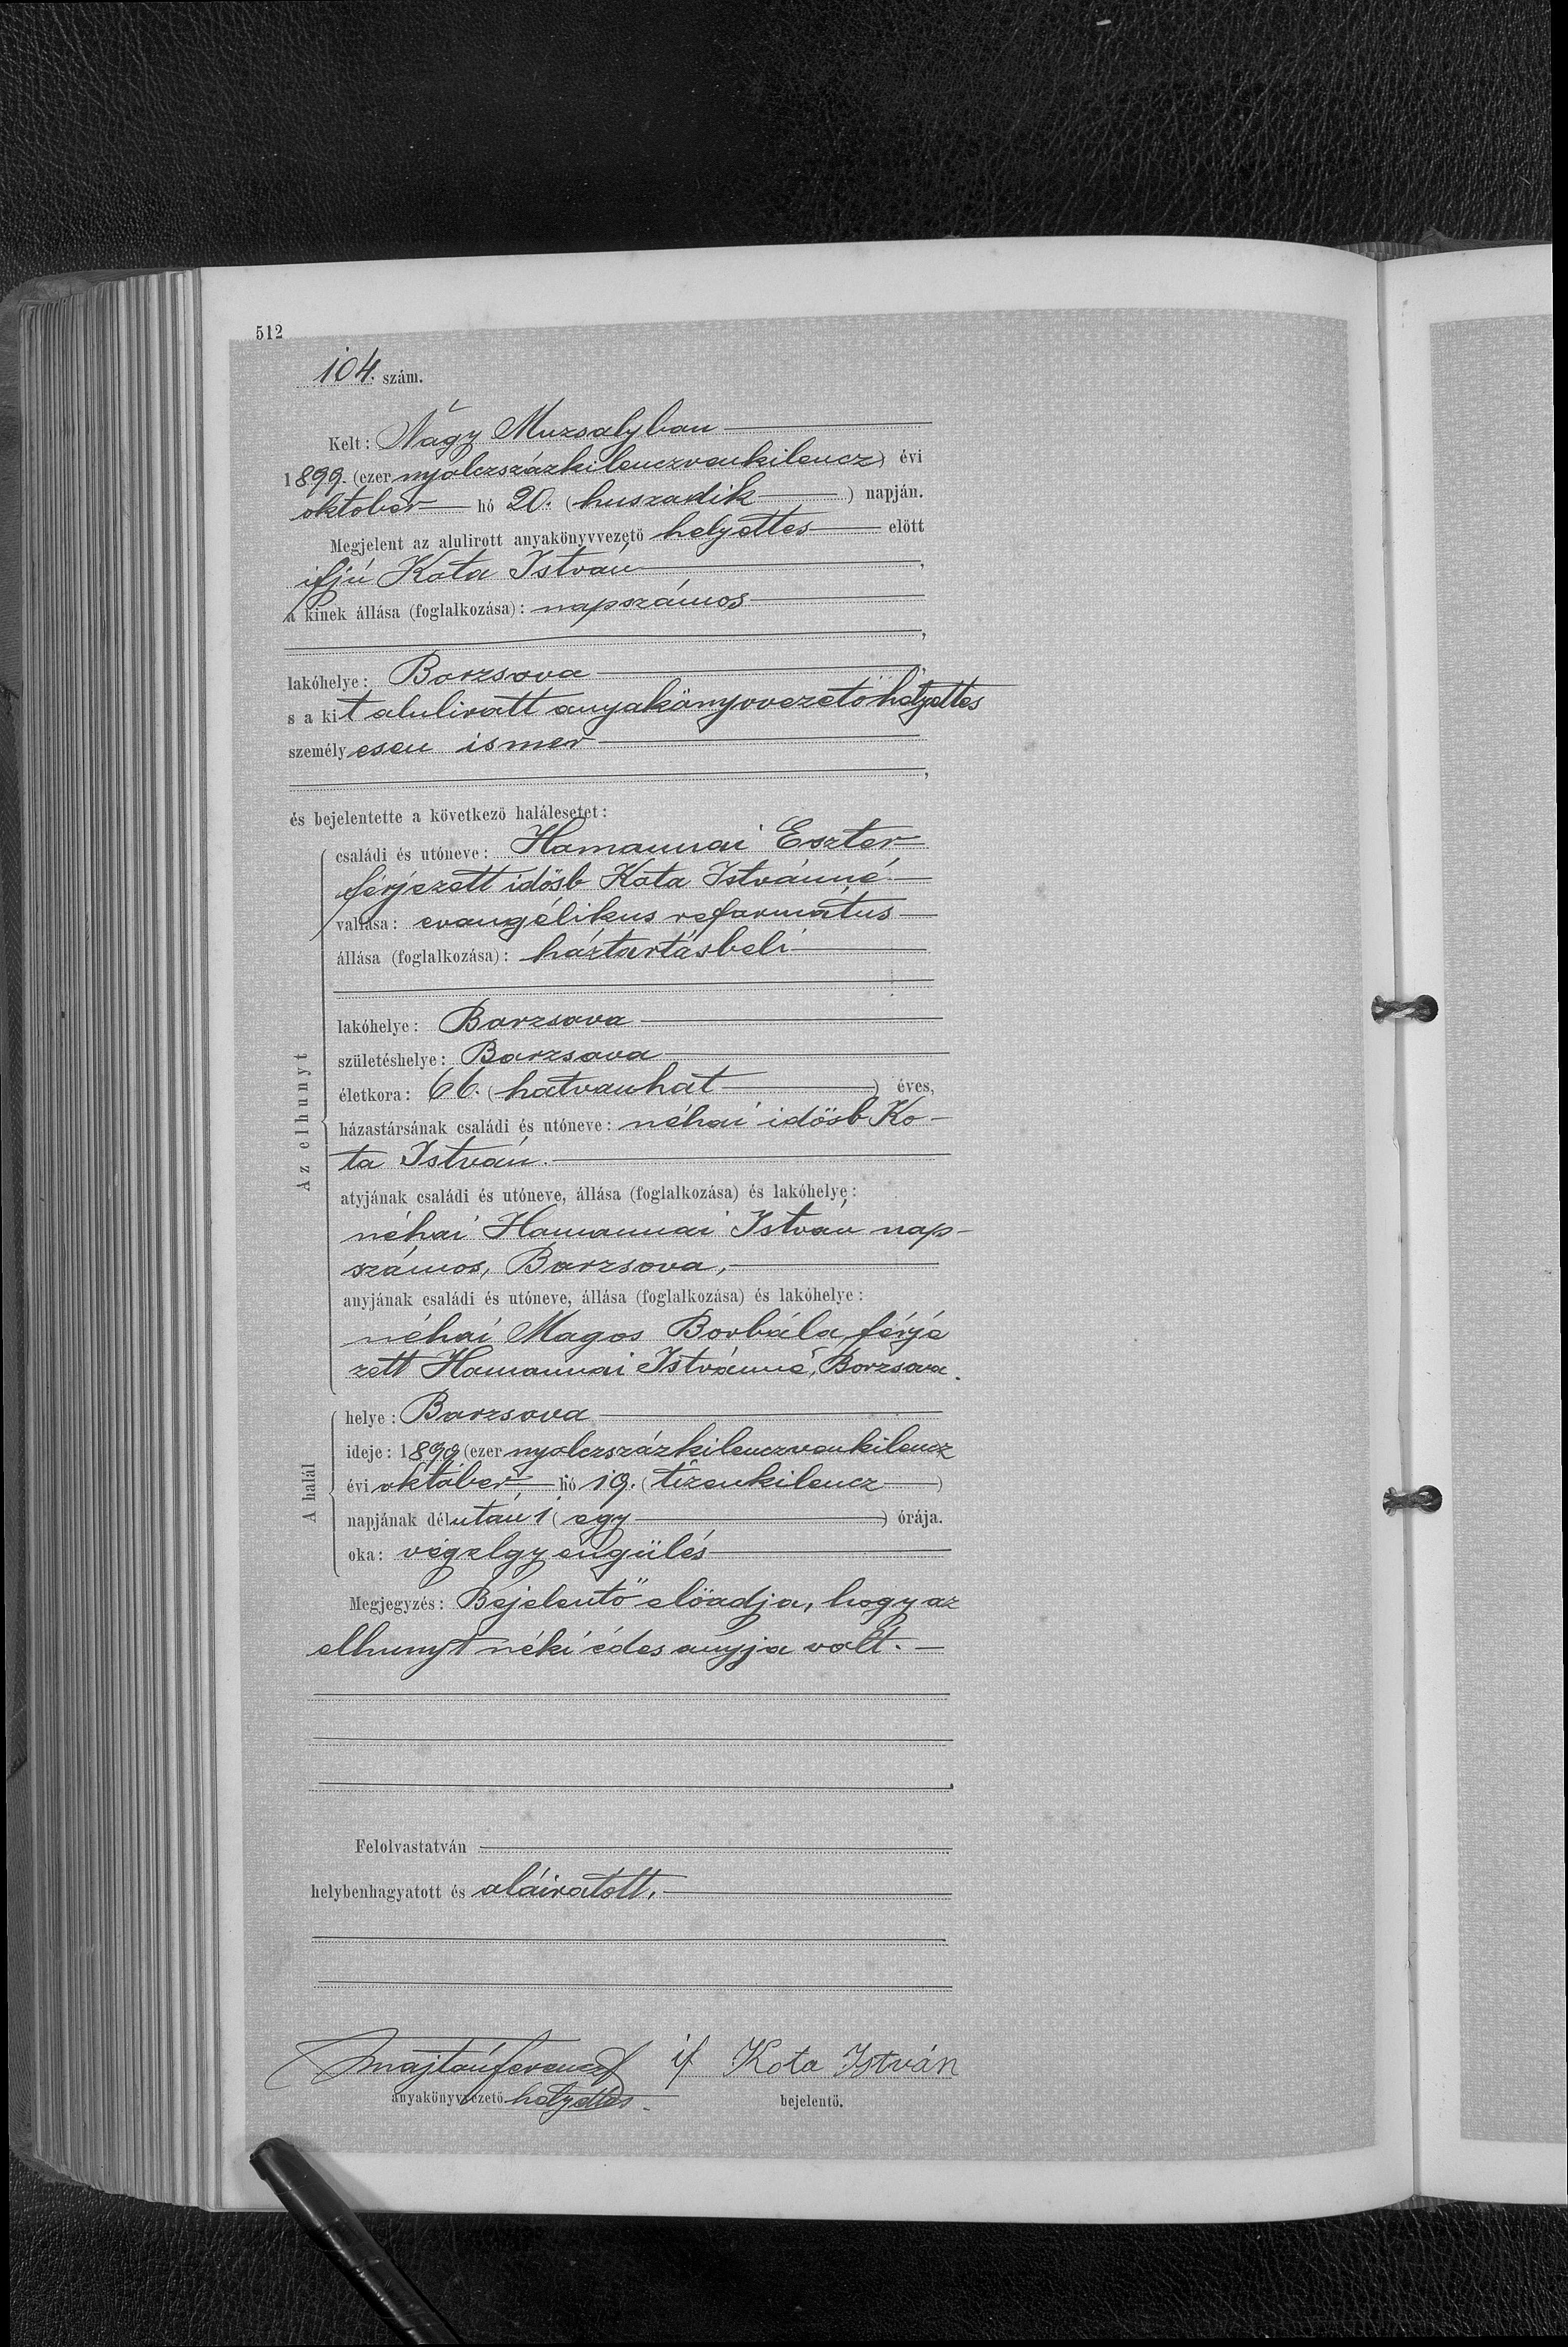 512
104. szám.
Kelt: Nagy Muzsalyban
1899. (ezer nyolczszázkilenczvenkilencz) évi
oktober hó 20. (huszadik) napján.
Megjelent az alulirott anyakönyvvezető helyettes előtt
ifjú Kota István,
a kinek állása (foglalkozása): napszámos
,
lakóhelye: Borzsova,
s a kit alulirott anyakönyvvezető helyettes
személyesen ismer
,
és bejelentette a következő halálesetet:
Az elhunyt
családi és utóneve: Hamannai Eszter
férjezett idősb Kota Istvánné
vallása: evangélikus református
állása (foglalkozása): háztartásbeli
lakóhelye: Borzsova
születéshelye: Borzsova
életkora: 66. (hatvanhat) éves,
házastársának családi és utóneve: néhai idősb Ko-
ta István.
atyjának családi és utóneve, állása (foglalkozása) és lakóhelye:
néhai Hamannai István nap-
számos, Borzsova,
anyjának családi és utóneve, állása (foglalkozása) és lakóhelye:
néhai Magos Borbála férje
zett Hamannai Istvánné, Borzsova.
A halál
helye: Borzsova
ideje: 1899 (ezer nyolczszázkilenczvenkilencz
évi október hó 19. (tizenkilencz)
napjának délután 1 (egy) órája.
oka: végelgyengülés
Megjegyzés: Bejelentő előadja, hogy az
elhunyt néki édes anyja volt.
Felolvastatván
helybenhagyatott és aláiratott.
Majtán Ferencz if Kota István
anyakönyvvezető helyettes. bejelentő.